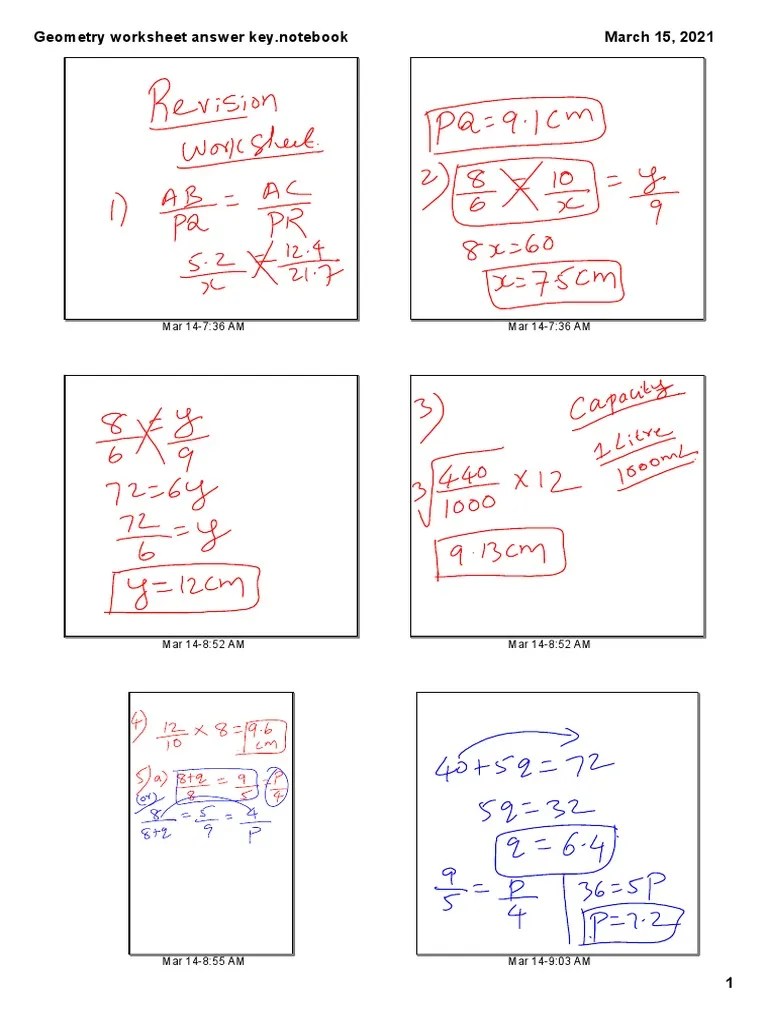 Geometry worksheet answer key.notebook March 15, 2021
Revision
Worksheet.
1) AB/PQ = AC/PR
5.2/x = 12.4/21.7
Mar 14-7:36 AM
PQ = 9.1cm
2) 8/6 = 10/x = y/9
8x=60
x=7.5cm
Mar 14-7:36 AM
8/6 = y/9
72=6y
72/6 = y
y=12cm
Mar 14-8:52 AM
3) Capacity
1 Litre
1000mL
∛440/1000 × 12
9.13cm
Mar 14-8:52 AM
4) 12/10 × 8 = 9.6 cm
5) a) 8+q/8 = 9/5 = P/4
(or)
8/8+q = 5/9 = 4/P
Mar 14-8:55 AM
40+5q=72
5q=32
q=6.4
9/5 = P/4
36=5P
P=7.2
Mar 14-9:03 AM
1